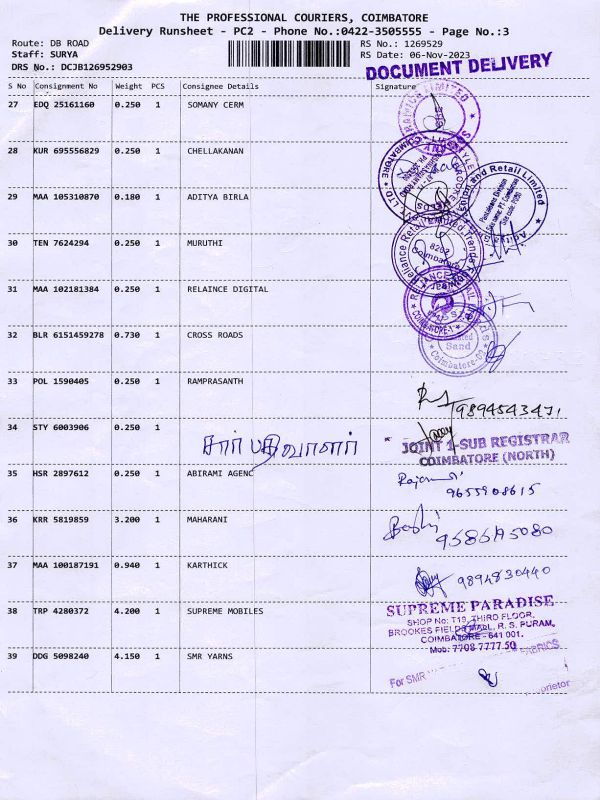 THE PROFESSIONAL COURIERS, COIMBATORE
Delivery Runsheet - PC2 - Phone No.:0422-3505555 - Page No.:3
Route: DB ROAD RS No.: 1269529
Staff: SURYA RS Date: 06-Nov-2023
DRS No.: DCJB126952903 DOCUMENT DELIVERY
S No Consignment No Weight PCS Consignee Details Signature
27 EDQ 25161160 0.250 1 SOMANY CERM
28 KUR 695556829 0.250 1 CHELLAKANAN
29 MAA 105310870 0.180 1 ADITYA BIRLA
30 TEN 7624294 0.250 1 MURUTHI
31 MAA 102181384 0.250 1 RELAINCE DIGITAL
32 BLR 6151459278 0.730 1 CROSS ROADS
33 POL 1590405 0.250 1 RAMPRASANTH
34 STY 6003906 0.250 1 சார் பதிவாளர்
JOINT 1-SUB REGISTRAR
COIMBATORE (NORTH)
35 HSR 2897612 0.250 1 ABIRAMI AGENC
9655908615
36 KRR 5819859 3.200 1 MAHARANI
37 MAA 100187191 0.940 1 KARTHICK 9894830440
38 TRP 4280372 4.200 1 SUPREME MOBILES
SUPREME PARADISE
SHOP No: T19, THIRD FLOOR,
BROOKES FIELDS MALL, R. S. PURAM,
COIMBATORE - 641 001.
Mob: 7708 7777 50
39 DDG 5098240 4.150 1 SMR YARNS
For SMR FABRICS